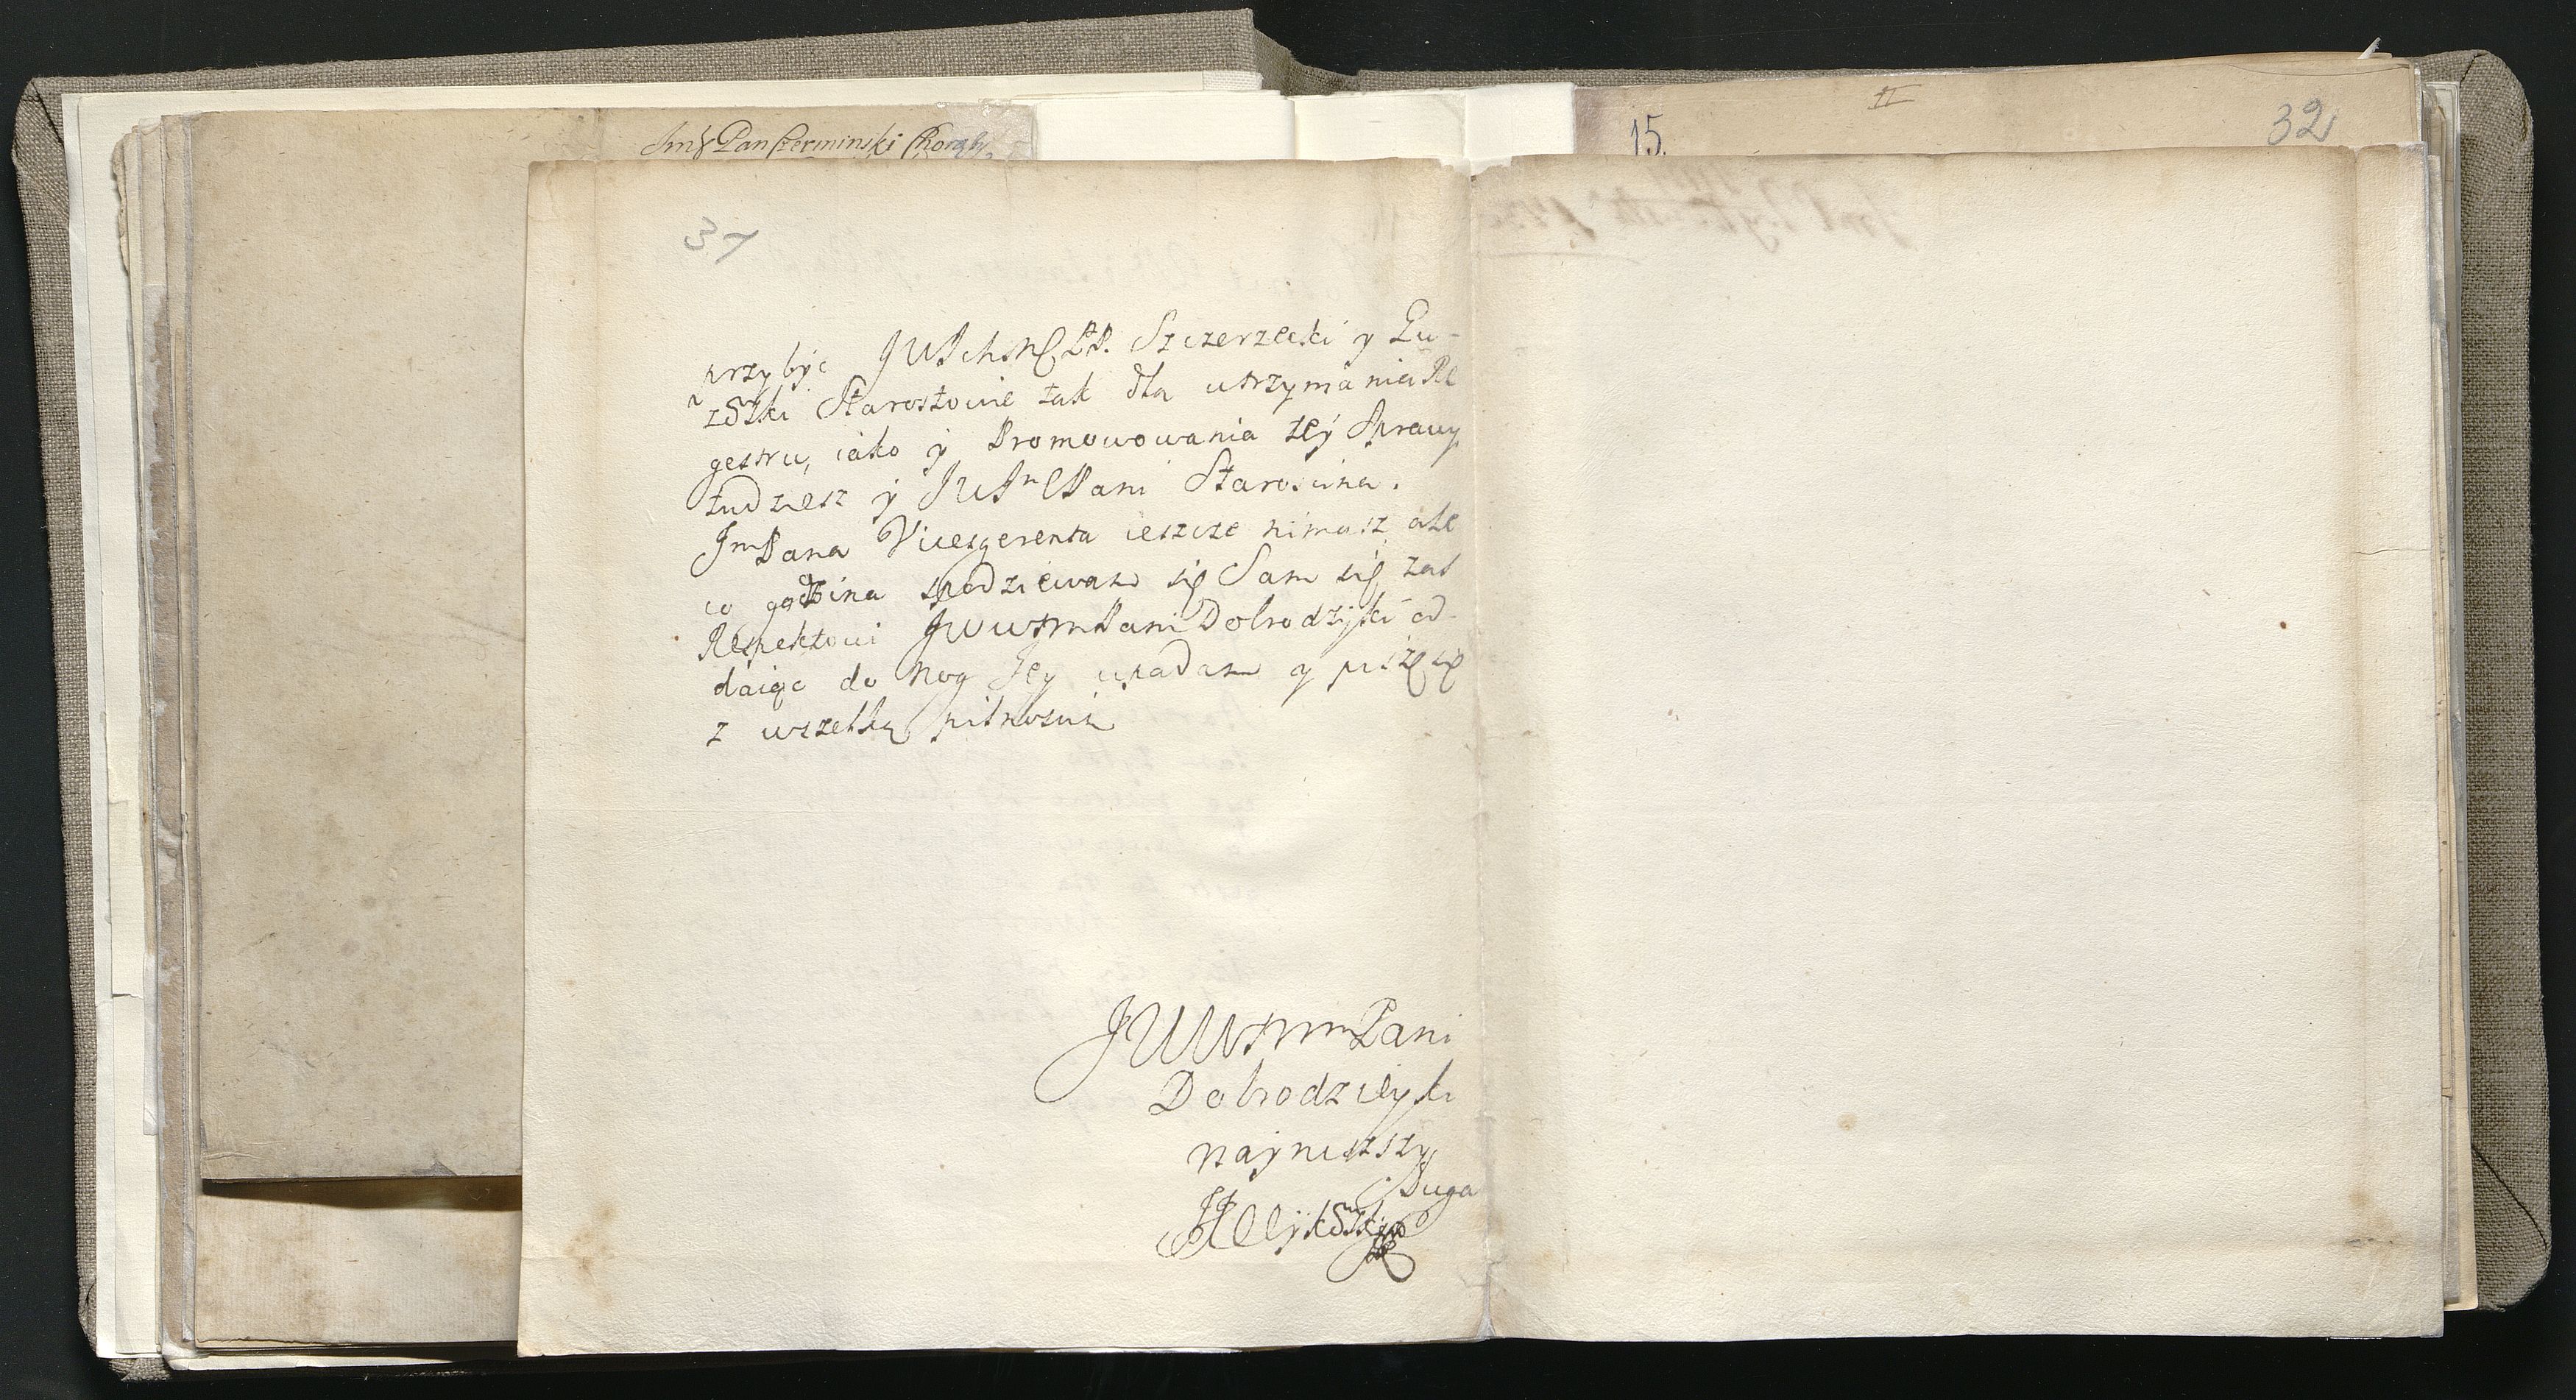 Jmć Pan Czerminski Chorąży
15.
II
32
37
przybyć JWIchmć PP. Szczerzecki y Łu-
zSki Starostowie tak dla utrzymania Re
gestru, iako ÿ Promowowania teÿ Sprawy
tudziesz ÿ JWJmć Pani Starościna.
JmPana Vicesgerenta ieszcze nimasz ale
co godzina spodziewam się Sam się zas
Respektowi JWWJmPani Dobrodziiki od-
daiąc do Nog Jey upadam y piszę się
z wszelką pilnoscią
JWWJmmPani
Dobrodzieyki
nayniszszy
Sługa